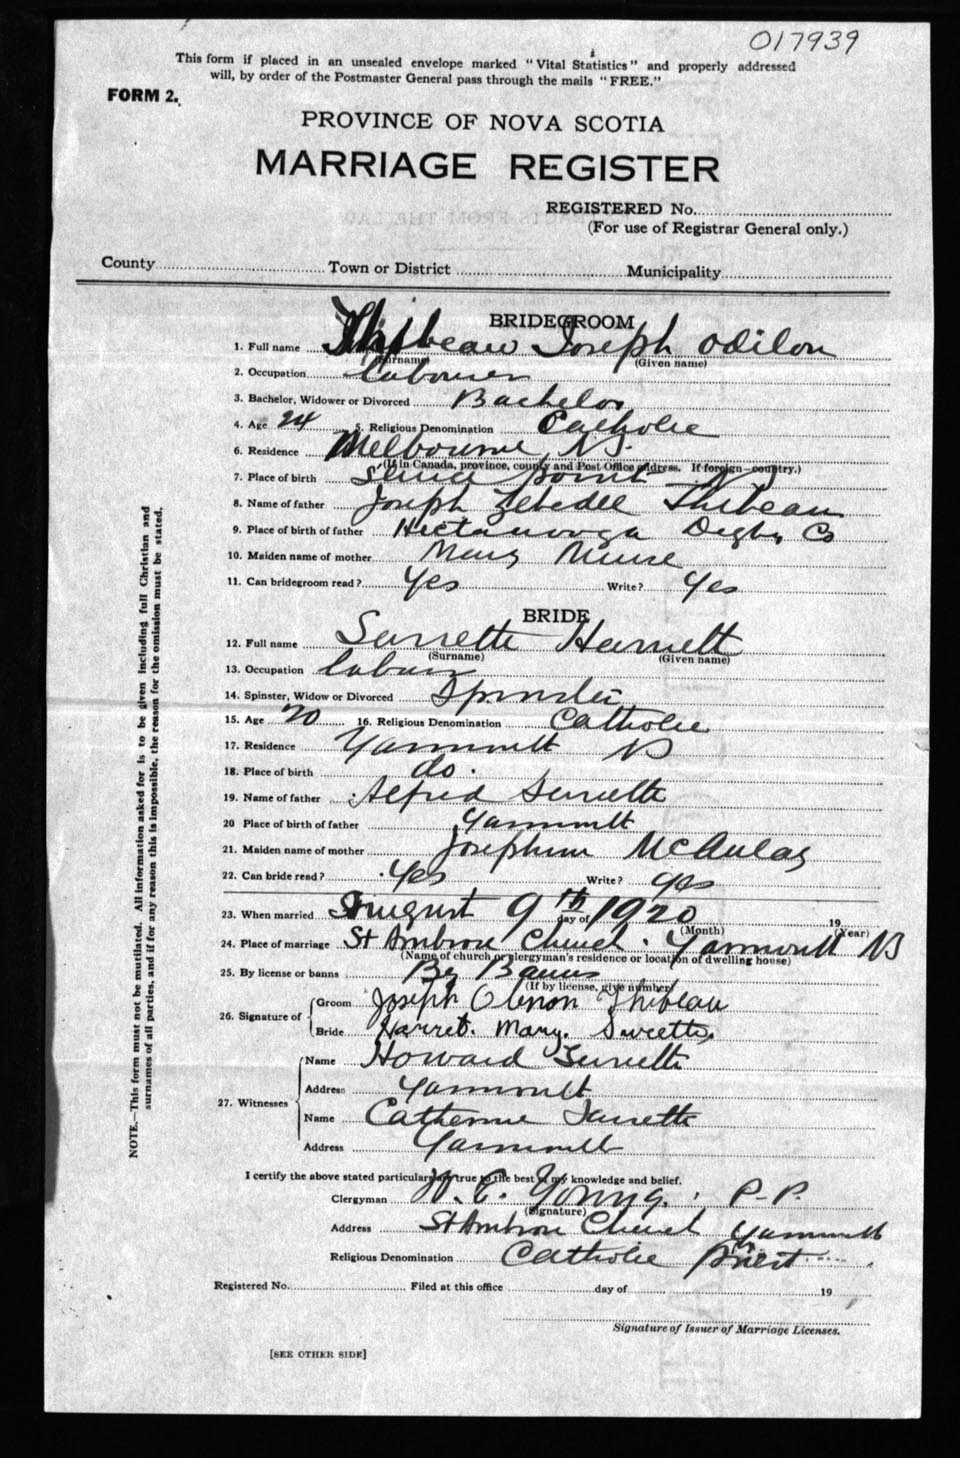 017939
This form if placed in an unsealed envelope marked "Vital Statistics" and properly addressed
will, by order of the Postmaster General pass through the mails "FREE."
FORM 2.
PROVINCE OF NOVA SCOTIA
MARRIAGE REGISTER
REGISTERED No.
(For use of Registrar General only.)
County Town or District Municipality
BRIDEGROOM
1. Full name Thibeau Joseph Odilon
(Surname) (Given name)
2. Occupation Labourer
3. Bachelor, Widower or Divorced Bachelor
4. Age 24 5. Religious Denomination Catholic
6. Residence Melbourne NS.
(If in Canada, province, county and Post Office address. If foreign—country.)
7. Place of birth Point NS
8. Name of father Joseph Zebedee Thibeau
9. Place of birth of father Hectanooga Digby Co
10. Maiden name of mother Mary Muise
11. Can bridegroom read? Yes Write? Yes
BRIDE
12. Full name Surrette Harriett
(Surname) (Given name)
13. Occupation Labour
14. Spinster, Widow or Divorced Spinster
15. Age 20 16. Religious Denomination Catholic
17. Residence Yarmouth NS
18. Place of birth do.
19. Name of father Alfred Surrette
20 Place of birth of father Yarmouth
21. Maiden name of mother Josephine McAulay
22. Can bride read? Yes Write? yes
23. When married August 9th day of 1920 19
(Month) (Year)
24. Place of marriage St Ambrose Church. Yarmouth NS
(Name of church or clergyman's residence or location of dwelling house)
25. By license or banns By Banns
(If by license, give number)
26. Signature of Groom Joseph Thibeau
Bride Harret. Mary. Surette.
27. Witnesses
Name Howard Surrette
Address Yarmouth
Name Catherine Surrette
Address Yarmouth
I certify the above stated particulars are true to the best of my knowledge and belief.
Clergyman W. E. Young. P.P.
(Signature)
Address St Ambrose Church Yarmouth
Religious Denomination Catholic Priest
Registered No. Filed at this office day of 19
Signature of Issuer of Marriage Licenses.
[SEE OTHER SIDE]
NOTE.—This form must not be mutilated. All information asked for is to be given including full Christian and
surnames of all parties, and if for any reason this is impossible, the reason for the omission must be stated.